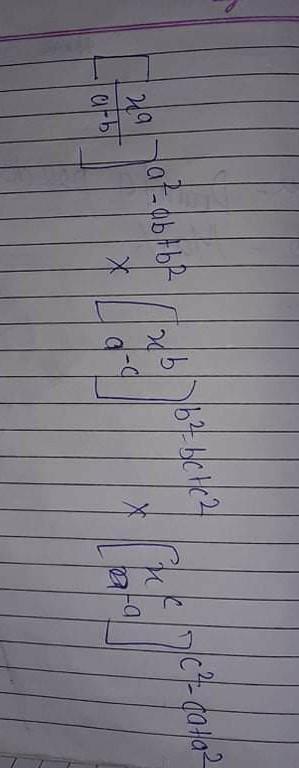 [x^a / a^-b]^a²-ab+b² × [x^b / a^-c]^b²-bc+c² × [x^c / a^-a]^c²-ca+a²